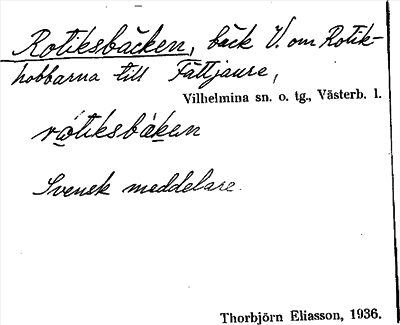 Rotiksbäcken, bäck V. om Rotik-
hobbarna till Fättjaure,
Vilhelmina sn. o. tg., Västerb. l.
rótiksbä̀ken
Svensk meddelare.
Thorbjörn Eliasson, 1936.